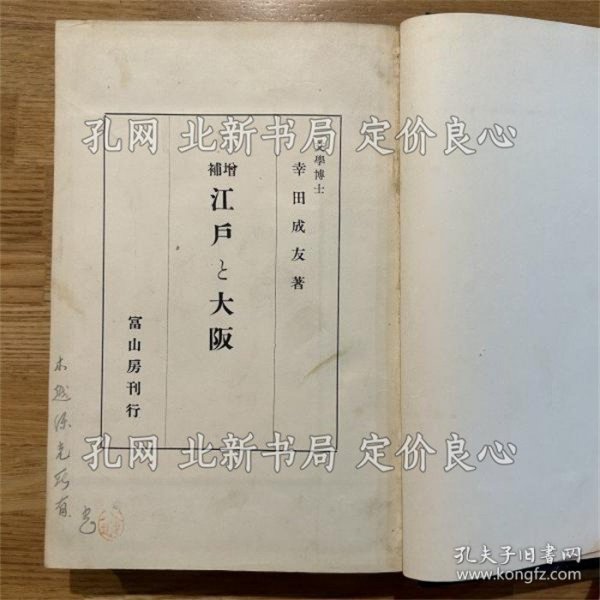 文學博士
幸田成友著
增補
江戸と大阪
冨山房刊行
孔网 北新书局 定价良心
孔网 北新书局 定价良心
孔网 北新书局 定价良心
孔夫子旧书网
www.kongfz.com